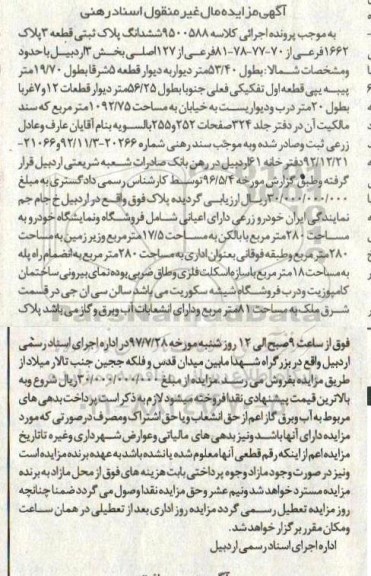 آگهی مزایده مال غیر منقول اسناد رهنی
به موجب پرونده اجرائی کلاسه ۹۵۰۰۵۸۸ ششدانگ پلاک ثبتی قطعه ۳ پلاک
۱۶۶۲ فرعی از ۷۰-۷۷-۷۸-۸۱ فرعی از ۱۲۷ اصلی بخش ۳ اردبیل با حدود
ومشخصات شمالا: بطول ۵۳/۴۰ متر دیوار به دیوار قطعه ۵ شرقا بطول ۱۹/۷۰ متر
پی به پی قطعه اول تفکیکی فعلی جنوبا بطول ۵۶/۲۵ متر دیوار قطعات ۱۲ و ۷ غربا
بطول ۲۰ متر درب و دیواریست به خیابان به مساحت ۱۰۹۲/۷۵ متر مربع که سند
مالکیت آن در دفتر جلد ۳۲۴ صفحات ۲۵۲ و ۲۵۵ بالسویه بنام آقایان عارف و عادل
زرعی ثبت و صادر شده و به موجب سند رهنی شماره ۲۰۲۶۶-۹۲/۱۱/۳ و ۲۱۰۶۶-
۹۲/۱۲/۲۱ دفترخانه ۶۱ اردبیل در رهن بانک صادرات شعبه شریعتی اردبیل قرار
گرفته و طبق گزارش مورخه ۹۶/۵/۴ توسط کارشناس رسمی دادگستری به مبلغ
ریال ارزیابی گردیده پلاک فوق واقع در اردبیل خ جام جم
نمایندگی ایران خودرو زرعی دارای اعیانی شامل فروشگاه و نمایشگاه خودرو به
مساحت ۲۸۰ متر مربع با بالکن به مساحت ۱۷/۵ متر مربع وزیر زمین به مساحت
۲۸۰ متر مربع وطبقه فوقانی بعنوان اداری به مساحت ۲۸۰ متر مربع به انضمام راه پله
به مساحت ۱۸ متر مربع با سازه اسکلت فلزی وطاق ضربی بوده نمای بیرونی ساختمان
کامپوزیت و درب فروشگاه شیشه سکوریت می باشد سالن سی ان جی در قسمت
شرق ملک به مساحت ۸۱ متر مربع و دارای انشعابات آب وبرق و گاز می باشد پلاک
فوق از ساعت ۹ صبح الی ۱۲ روز شنبه مورخه ۹۷/۷/۲۸ در اداره اجرای اسناد رسمی
اردبیل واقع در بزرگراه شهدا مابین میدان قدس و فلکه ججین جنب تالار میلاد از
طریق مزایده بفروش می رسد. مزایده از مبلغ ریال شروع وبه
بالاترین قیمت پیشنهادی نقدا فروخته میشود لازم به ذکر است پرداخت بدهی های
مربوط به آب وبرق گاز اعم از حق انشعاب و یا حق اشتراک ومصرف در صورتی که مورد
مزایده دارای آنها باشد و نیز بدهی های مالیاتی و عوارض شهرداری وغیره تا تاریخ
مزایده اعم از اینکه رقم قطعی آنها معلوم شده یا نشده باشد به عهده برنده مزایده است
ونیز در صورت وجود مازاد وجوه پرداختی بابت هزینه های فوق از محل مازاد به برنده
مزایده مسترد خواهد شد ونیم عشر و حق مزایده نقدا وصول می گردد ضمنا چنانچه
روز مزایده تعطیل رسمی گردد مزایده روز اداری بعد از تعطیلی در همان ساعت
ومکان مقرر برگزار خواهد شد.
اداره اجرای اسناد رسمی اردبیل